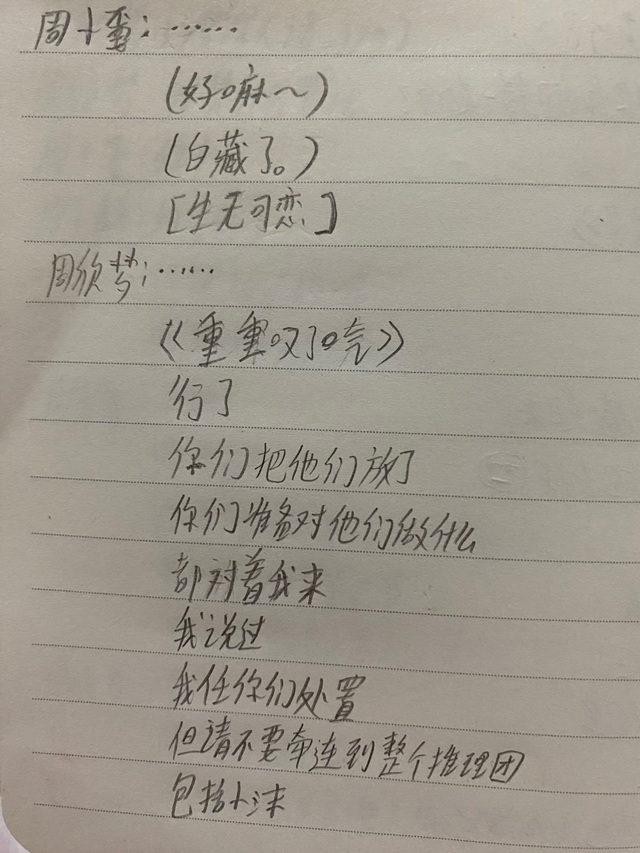 周卜蛋：……
(好嘛～)
(白藏了。)
[生无可恋]
周欣梦：……
《重重叹了口气》
行了
你们把他们放了
你们准备对他们做什么
都对着我来
我说过
我任你们处置
但请不要牵连到整个推理团
包括卜沫